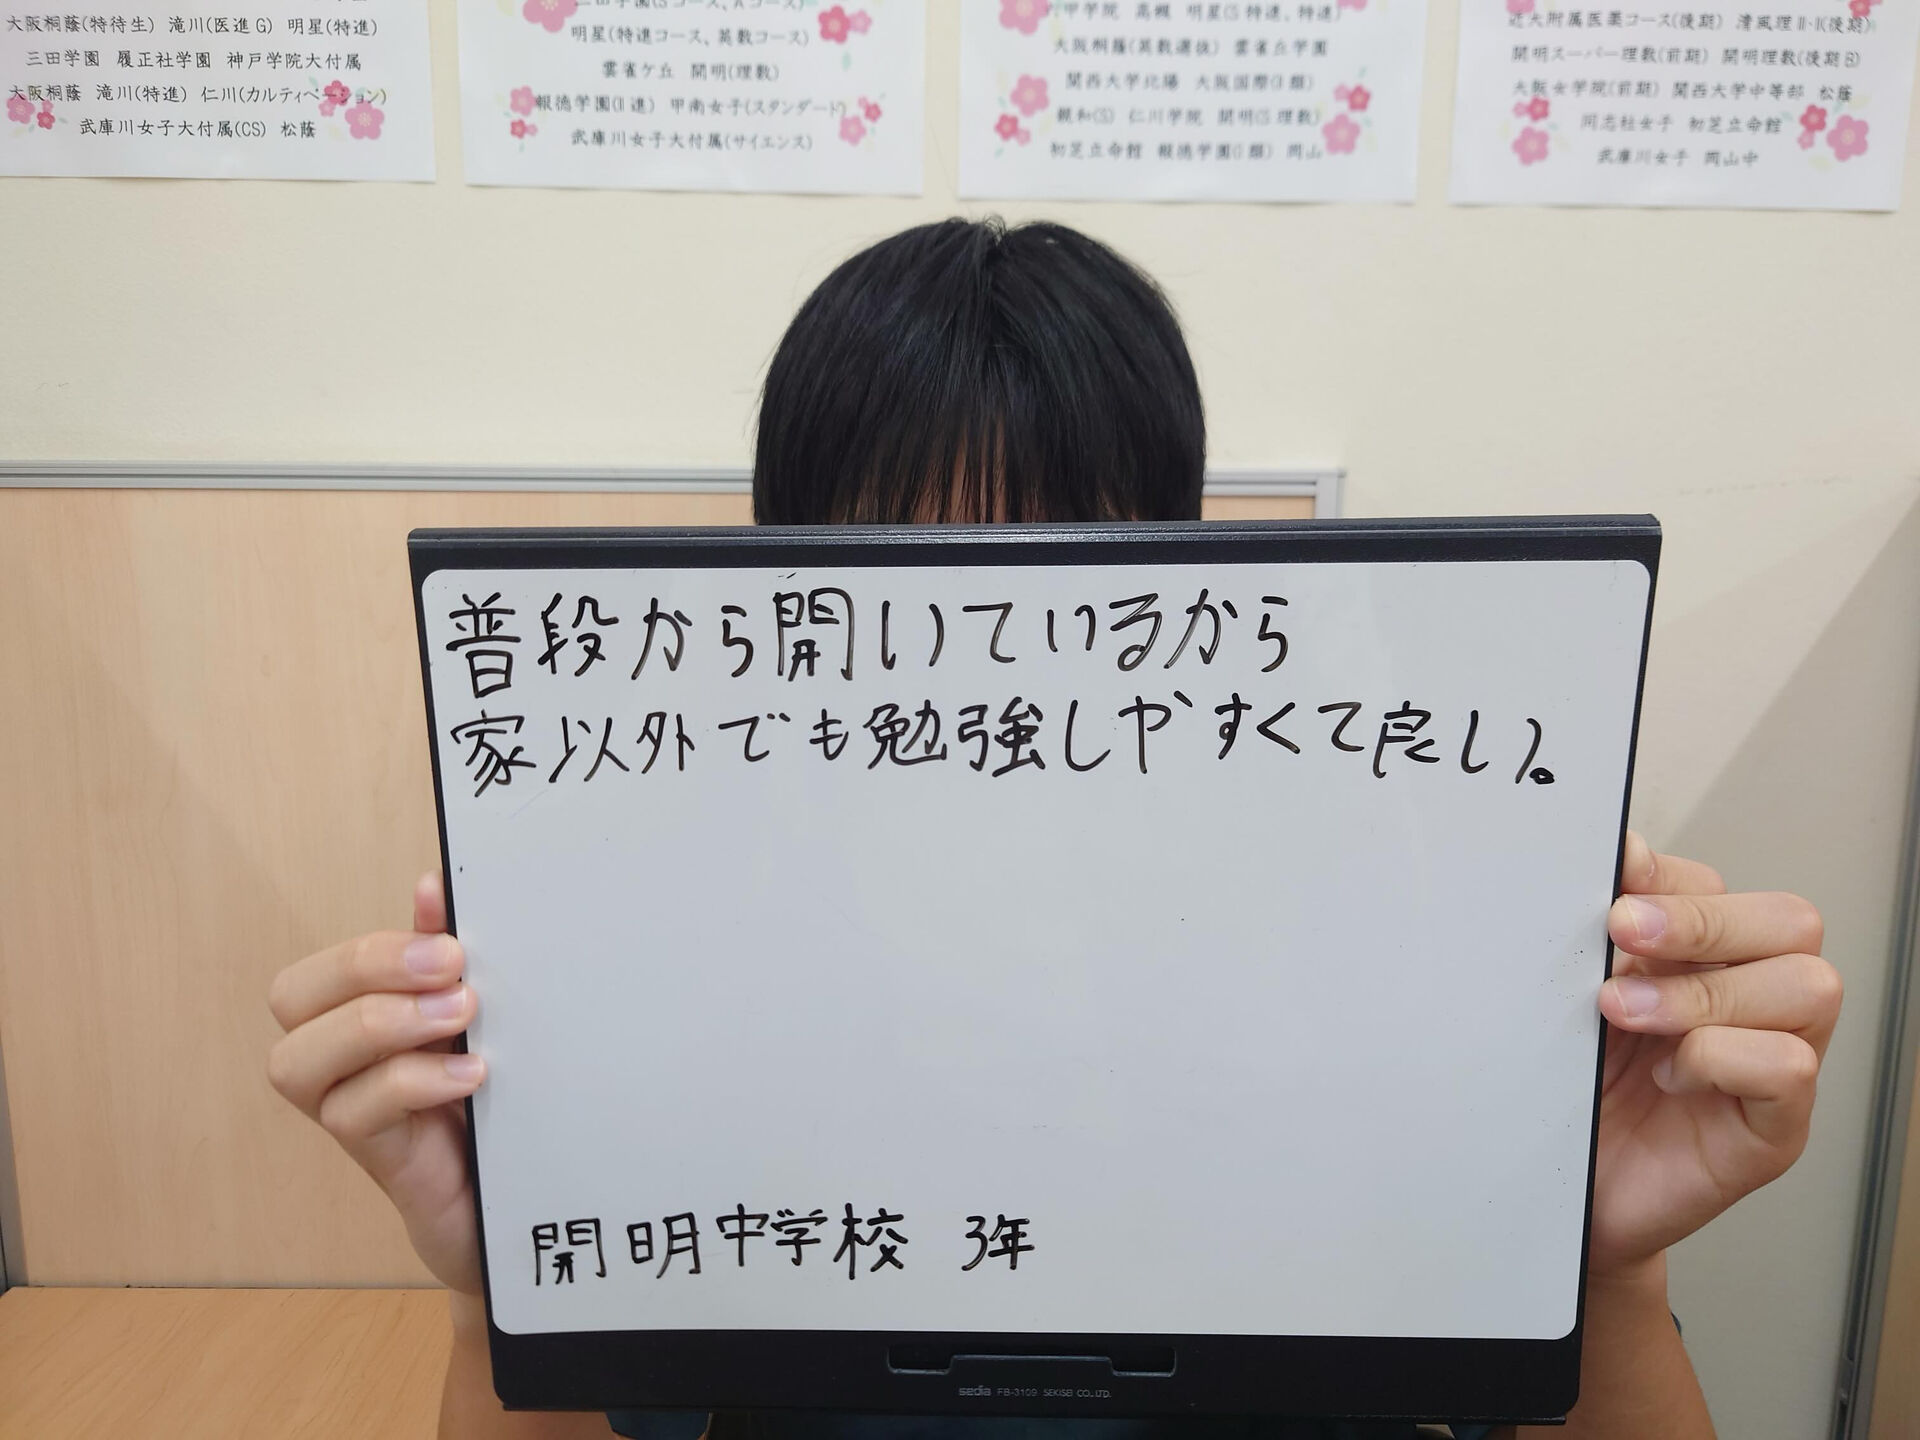 大阪桐蔭(特待生) 滝川(医進G) 明星(特進)
三田学園 履正社学園 神戸学院大付属
大阪桐蔭 滝川(特進) 仁川(カルティベーション)
武庫川女子大付属(CS) 松蔭
三田学園(Sコース、Aコース)
明星(特進コース、英数コース)
雲雀ケ丘 開明(理数)
報徳学園(II進) 甲南女子(スタンダード)
武庫川女子大付属(サイエンス)
六甲学院 高槻 明星(S特進、特進)
大阪桐蔭(英数選抜) 雲雀丘学園
関西大学北陽 大阪国際(I類)
親和(S) 仁川学院 開明(S理数)
初芝立命館 報徳学園(I類) 岡山
近大附属医薬コース(後期) 清風理II・II(後期)
開明スーパー理数(前期) 開明理数(後期B)
大阪女学院(前期) 関西大学中等部 松蔭
同志社女子 初芝立命館
武庫川女子 岡山中
普段から開いているから
家以外でも勉強しやすくて良い。
開明中学校 3年
sedia FB-3109 SEKISEI CO.,LTD.